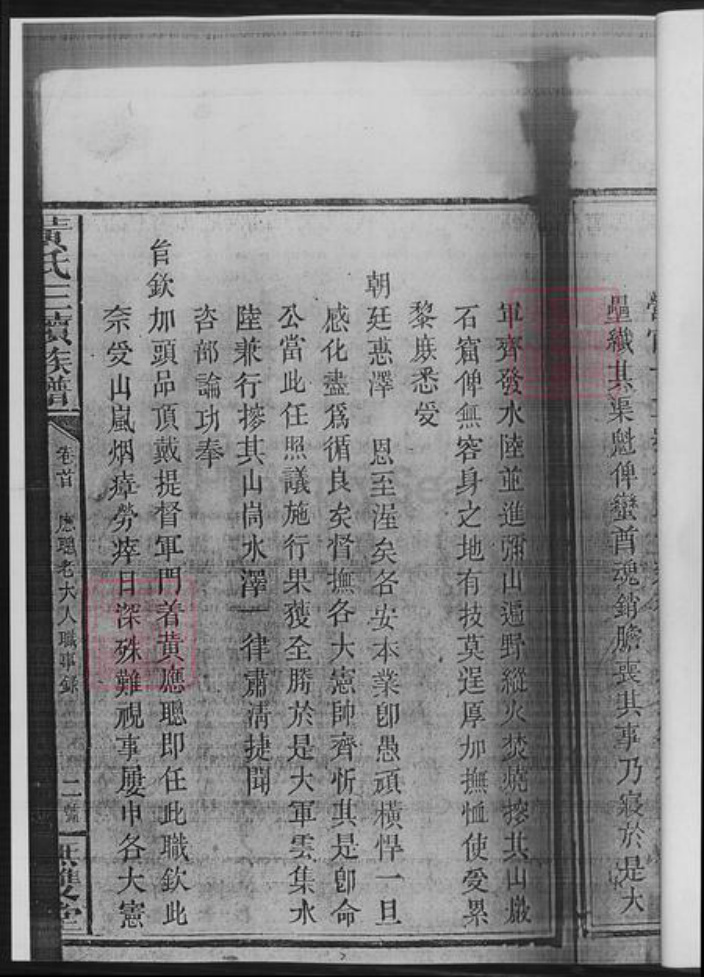 壘纎其渠魁俾蠻酋魂銷膽喪其事乃寢於是大
軍齊發水陸並進彌山遍野縱火焚燒搜其山巖
石窟俾無容身之地有技莫逞厚加撫恤使爰累
黎庶悉爰
朝廷惠澤　恩至渥矣各安本業卽愚頑橫悍一旦
感化盡爲循良矣督撫各大憲帥齊忻其是卽命
公當此任照議施行果獲全勝於是大軍雲集水
陸兼行搜其山崗水澤一律肅清捷聞
咨部論功奉
㫖欽加頭品頂戴提督軍門着黃應聰即任此職欽此
奈受山嵐烟瘴勞瘁日深殊難視事屢申各大憲
黃氏三續族譜
卷首　應聰老大人職事錄
二號
無雙堂